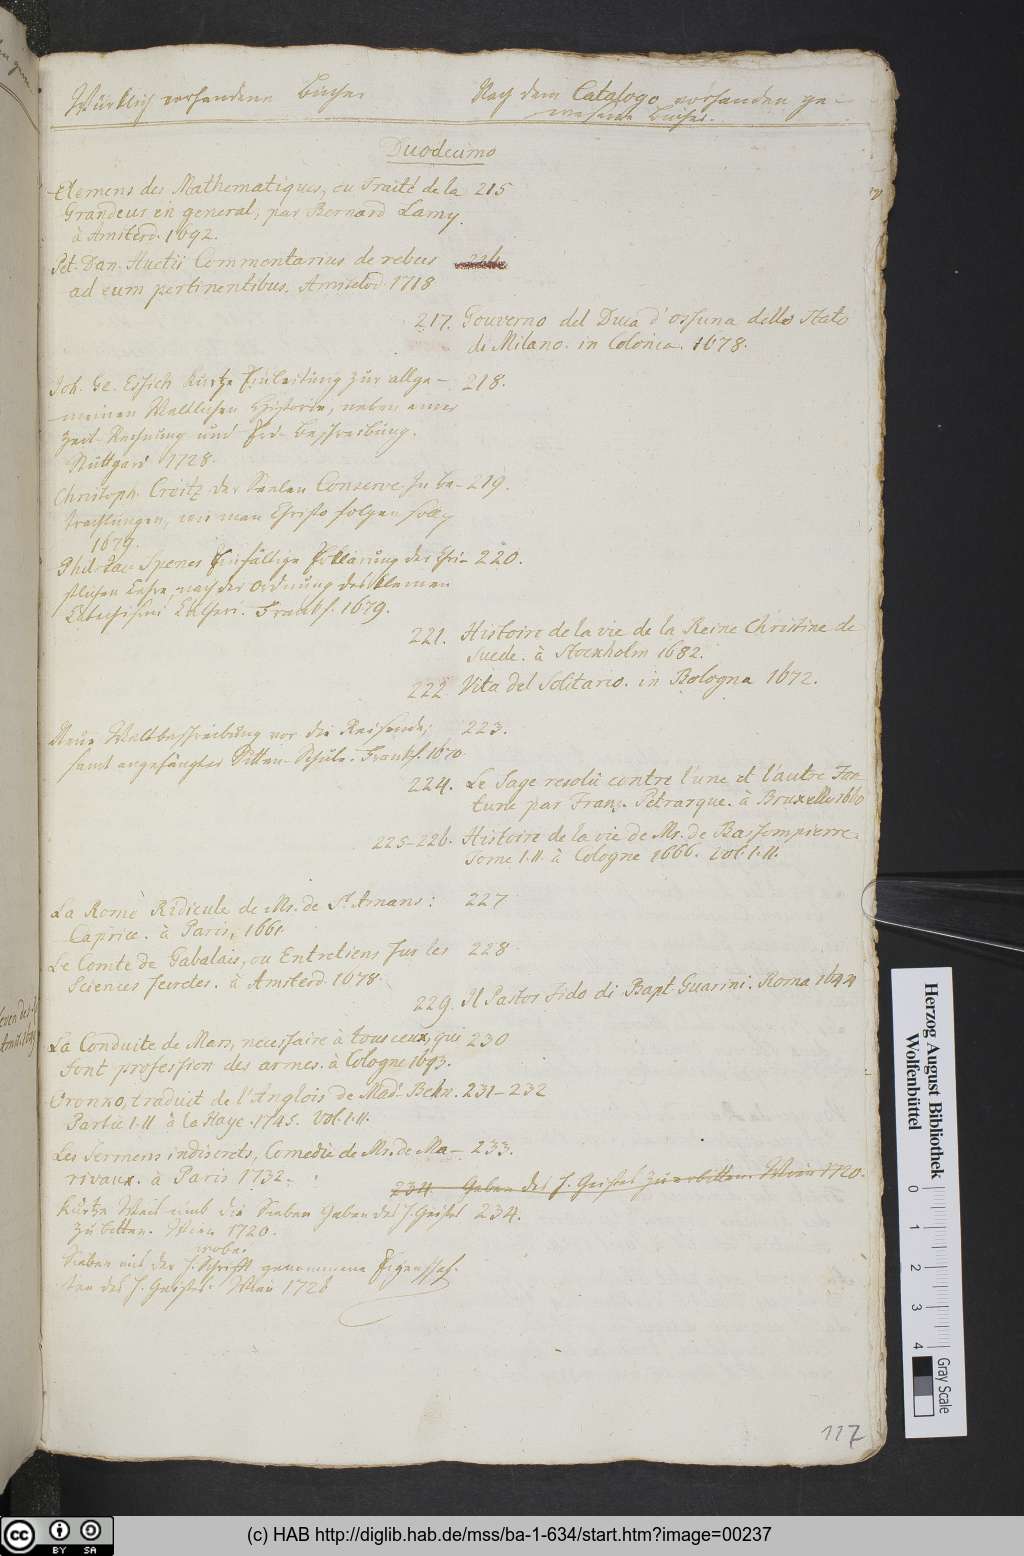 Würklich vorhandene Bücher
Nach dem Catalogo vorhanden ge-
wesene Bücher.
Duodecimo
Elemens des Mathematiques, ou Traité de la 215
Grandeur en general, par Bernard Lamy.
à Amsterd. 1692.
Pet. Dan. Huetii Commentarius de rebus
ad eum pertinentibus. Amstelod 1718
217. Gouverno del Duca d'ossuna dello Stato
di Milano. in Colonia. 1678.
Joh. Ge. Essich kurtze Einleitung zur allge- 218.
meinen Weltlichen Historie, neben einer
Zeit-Rechnung und Erd-beschreibung.
Stuttgard 1728.
Christoph Creitz der Seelen Conserve in be- 219.
trachtungen, wie man Christo folgen soll
1679.
Phil. Jac. Spener Einfältige Erklärung der Chri- 220.
stlichen Lehre, nach der Ordnung des kleinen
Catechismi Lutheri. Franckf. 1679.
221. Histoire de la vie de la Reine Christine de
Suede. à Stockholm 1682.
222 Vita del Solitario. in Bologna 1672.
Neue Weltbeschreibung vor die Reisende, 223.
samt angehängter Sitten-Schule. Franckf. 1670.
224. Le Sage resolu contre l'une et l'autre For-
tune par Franç. Petrarque. à Bruxelle 1660
225-226. Histoire de la vie de Mr. de Bassompierre.
Tome I.II. à Cologne 1666. Vol. I.II.
La Rome Ridicule de Mr. de St. Amans: 227
Caprice. à Paris, 1661.
Le Comte de Gabalais, ou Entretiens sur les 228
Sciences secretes. à Amsterd 1678.
229. Il Pastor Fido di Bapt Guarini. Roma
La Conduite de Mars, necessaire à tous ceux, qui 230
font profession des armes. à Cologne 1693.
Oronko, traduit de l'Anglois de Mad. Behn. 231-232
Partie I.II à la Haye. 1745. Vol. I.II.
Les Sermens indiscrets, Comedie de Mr. de Ma- 233.
rivaux. à Paris 1732.
234 Gaben des H. Geistes zu erbitten. Wien 1720.
Kurtze Weis umb die Sieben Gaben des H. Geistes 234.
zu bitten. Wien 1720.
Sieben aus der H. Schrifft genommene Eigenschaf-
ten des H. Geistes. Wien 1728
117
Herzog August Bibliothek
Wolfenbüttel
0 1 2 3 4
Gray Scale
cc BY SA
(c) HAB http://diglib.hab.de/mss/ba-1-634/start.htm?image=00237